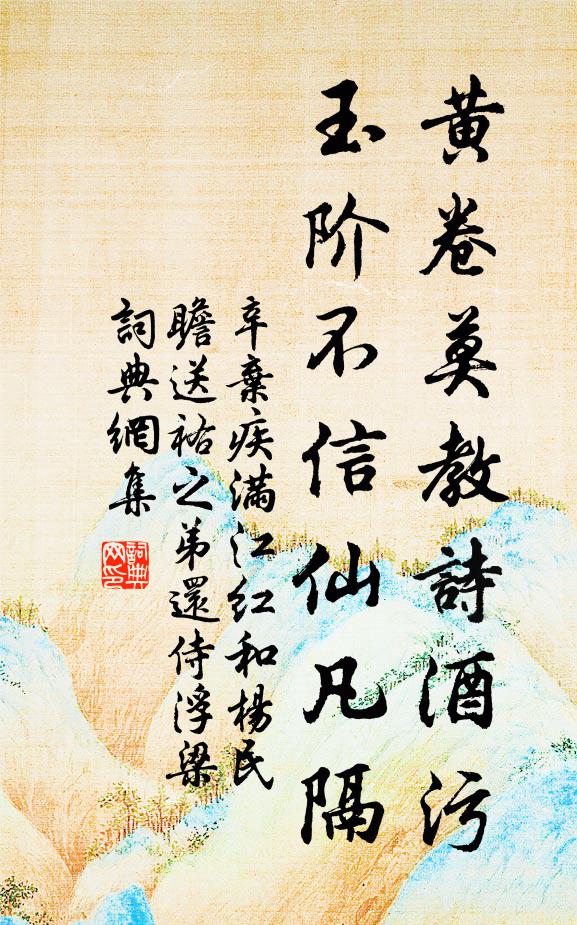 黄卷莫教詩酒污
玉阶不信仙凡隔
辛棄疾满江红和楊民
瞻送祐之弟還侍浮梁
詞典網集
詞典
网印